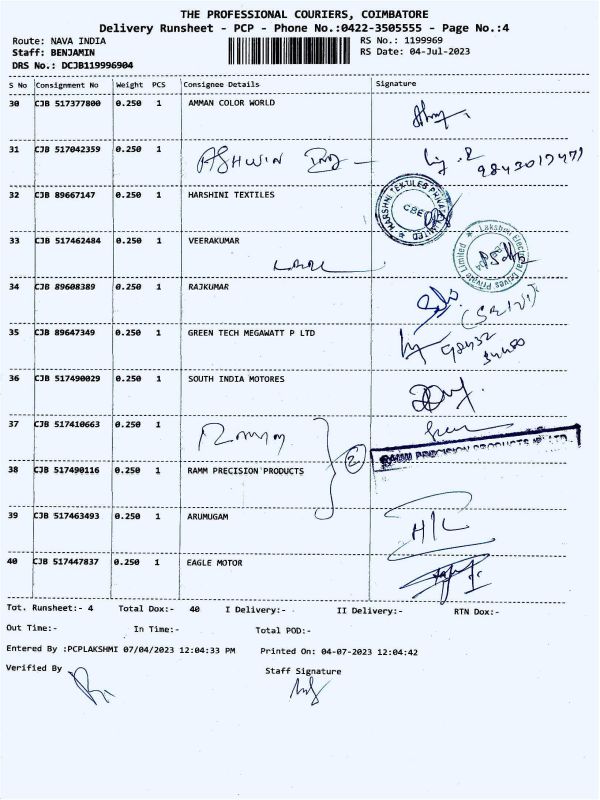 THE PROFESSIONAL COURIERS, COIMBATORE
Delivery Runsheet - PCP - Phone No.:0422-3505555 - Page No.:4
Route: NAVA INDIA RS No.: 1199969
Staff: BENJAMIN RS Date: 04-Jul-2023
DRS No.: DCJB119996904
S No Consignment No Weight PCS Consignee Details Signature
30 CJB 517377800 0.250 1 AMMAN COLOR WORLD
31 CJB 517042359 0.250 1 ASHWIN
32 CJB 89667147 0.250 1 HARSHINI TEXTILES
HARSHNI TEXTILES PRIVATE LIMITED
CBE
33 CJB 517462484 0.250 1 VEERAKUMAR
Lakshmi Electrical Drives Private Limited
34 CJB 89608389 0.250 1 RAJKUMAR
35 CJB 89647349 0.250 1 GREEN TECH MEGAWATT P LTD
36 CJB 517490029 0.250 1 SOUTH INDIA MOTORES
37 CJB 517410663 0.250 1
RAMM PRECISION PRODUCTS (P) LTD.
38 CJB 517490116 0.250 1 RAMM PRECISION PRODUCTS
39 CJB 517463493 0.250 1 ARUMUGAM
40 CJB 517447837 0.250 1 EAGLE MOTOR
Tot. Runsheet:- 4 Total Dox:- 40 I Delivery:- II Delivery:- RTN Dox:-
Out Time:- In Time:- Total POD:-
Entered By :PCPLAKSHMI 07/04/2023 12:04:33 PM Printed On: 04-07-2023 12:04:42
Verified By Staff Signature